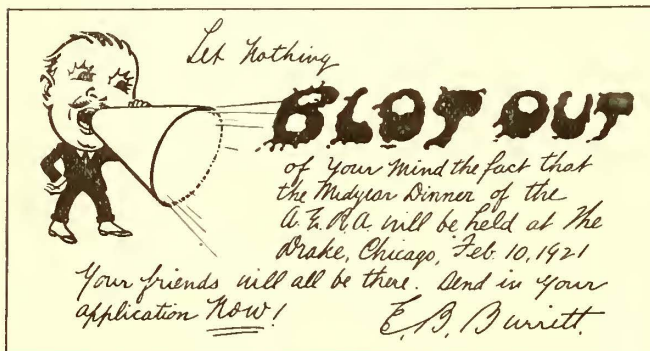 Let Nothing
BLOT OUT
of your mind the fact that
the Midyear Dinner of the
A.E.R.A. will be held at The
Drake, Chicago, Feb. 10, 1921
Your friends will all be there. Send in your
application NOW!
E. B. Burritt.